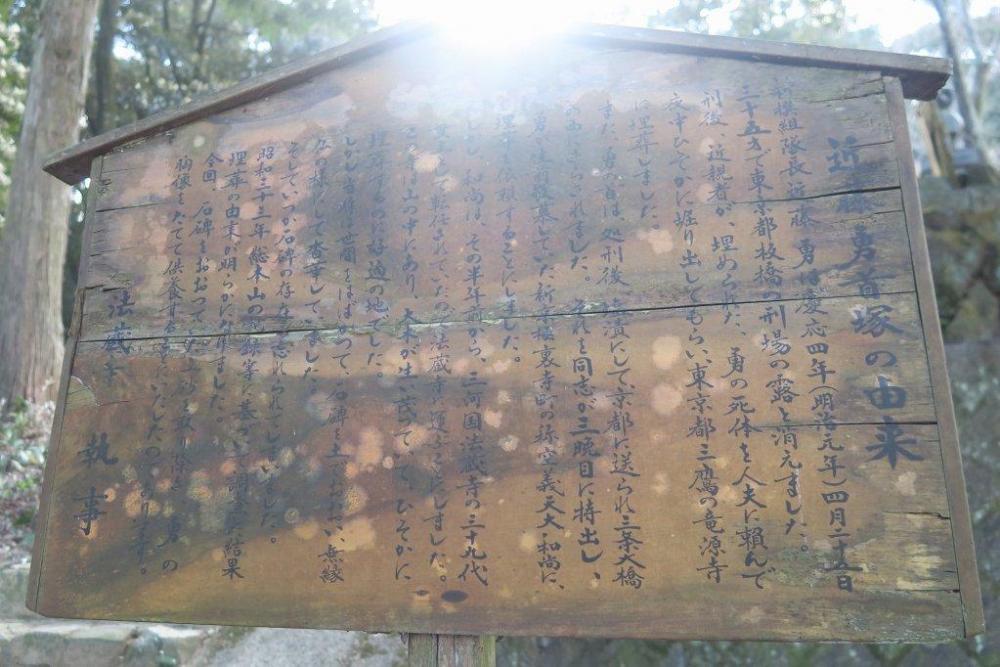 近藤勇首塚の由来
新撰組隊長近藤勇は慶応四年(明治元年)四月二十五日
三十五才で東京都板橋の刑場の露と消えました。
刑後、近親者が、埋められた、勇の死体を人夫に頼んで
夜中ひそかに堀り出してもらい、東京都三鷹の竜源寺
に埋葬しました。
また、勇の首は、処刑後塩漬にして、京都に送られ三条大橋
の西にさらされました。それを同志が三晩目に持出し、
勇が生前敬慕していた新京極裏寺町の称空義天大和尚に、
埋葬を依頼することにしました。
しかし、和尚は、その半年前から、三河国法蔵寺の三十九代
貫主として転任されていたので法蔵寺に運ぶことにしました。
ここは山の中にあり、大木が生い茂っていて、ひそかに
埋葬するのに好適の地でした。
しかし当時は世間をはばかって、石碑を土でおおい、無縁
仏の様にして葬りました。
そして、いつか石碑の存在も忘れられてしまいました。
昭和三十三年総本山の記録等に基づいて調査の結果
埋葬の由来が明らかになりました。
今回、石碑をおおっていた土砂を取り除き、勇の
胸像をたてて供養することにいたしたのであります。
法蔵寺 執事